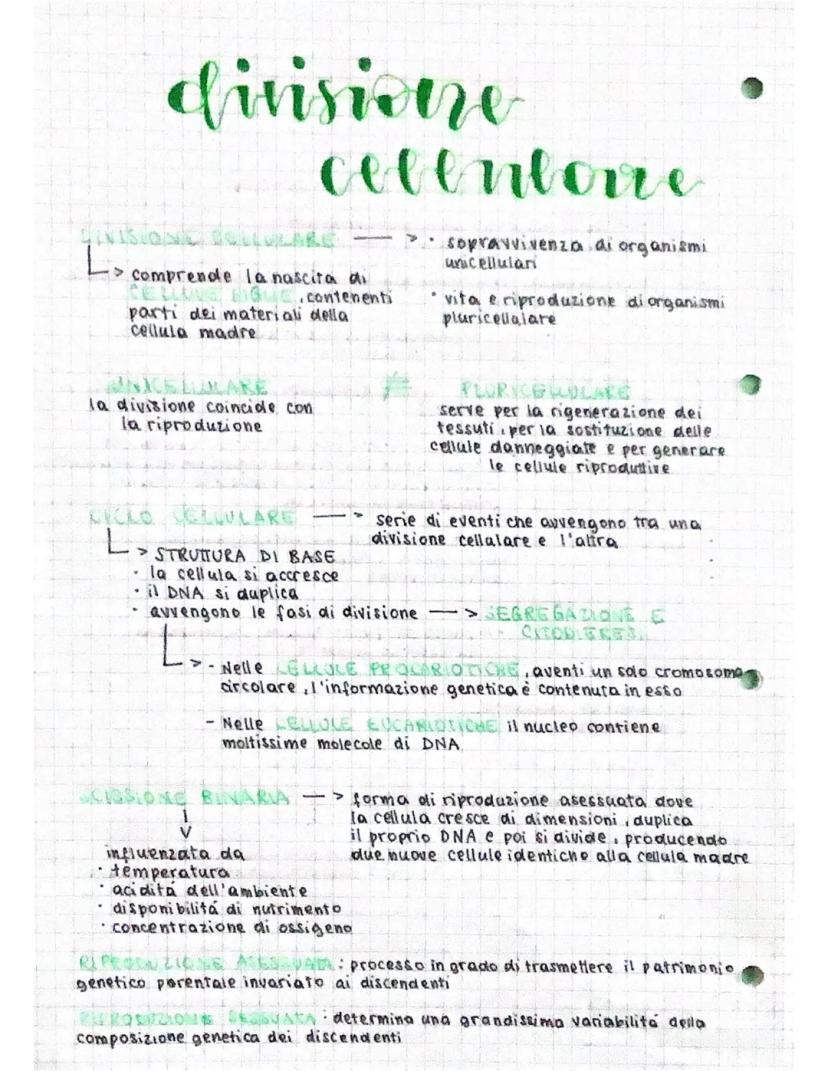 divisione
cellulare
DIVISIONE CELLULARE —> · sopravvivenza di organismi
unicellulari
↳> comprende la nascita di
CELLULE FIGLIE, contenenti
parti dei materiali della
cellula madre
· vita e riproduzione di organismi
pluricellulare
UNICELLULARE ≠ PLURICELLULARE
la divisione coincide con
la riproduzione
serve per la rigenerazione dei
tessuti, per la sostituzione delle
cellule danneggiate e per generare
le cellule riproduttive
CICLO CELLULARE —> serie di eventi che avvengono tra una
divisione cellulare e l'altra
↳> STRUTTURA DI BASE
· la cellula si accresce
· il DNA si duplica
· avvengono le fasi di divisione —> SEGREGAZIONE E
CITODIERESI
↳> - Nelle CELLULE PROCARIOTICHE, aventi un solo cromosoma
circolare, l'informazione genetica è contenuta in esso
- Nelle CELLULE EUCARIOTICHE il nucleo contiene
moltissime molecole di DNA
SCISSIONE BINARIA —> forma di riproduzione asessuata dove
la cellula cresce di dimensioni, duplica
il proprio DNA e poi si divide, producendo
due nuove cellule identiche alla cellula madre
influenzata da
· temperatura
· aciditá dell'ambiente
· disponibilitá di nutrimento
· concentrazione di ossigeno
RIPRODUZIONE ASESSUATA: processo in grado di trasmettere il patrimonio
genetico parentale invariato ai discendenti
RIPRODUZIONE SESSUATA: determina una grandissima variabilitá della
composizione genetica dei discendenti